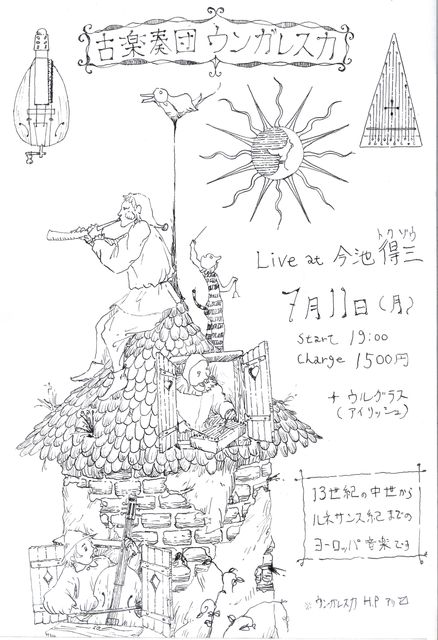 古楽奏団ウンガレスカ
Live at 今池 得三
トクゾウ
7月11日(月)
Start 19:00
Charge 1500円
+ ウルグラス
(アイリッシュ)
13世紀の中世から
ルネサンス紀までの
ヨーロッパ音楽です
※ウンガレスカ H.P